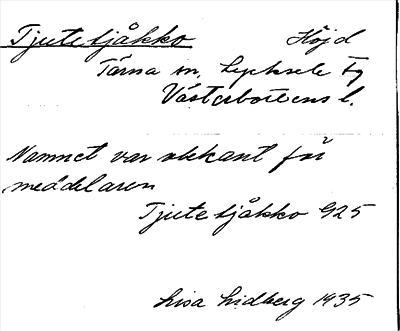 Tjutetjåkko Höjd
Tärna sn, Lycksele
Västerbottens l.
Namnet var okänt för
meddelaren
Tjutetjåkko G25
Lisa Lidberg 1935